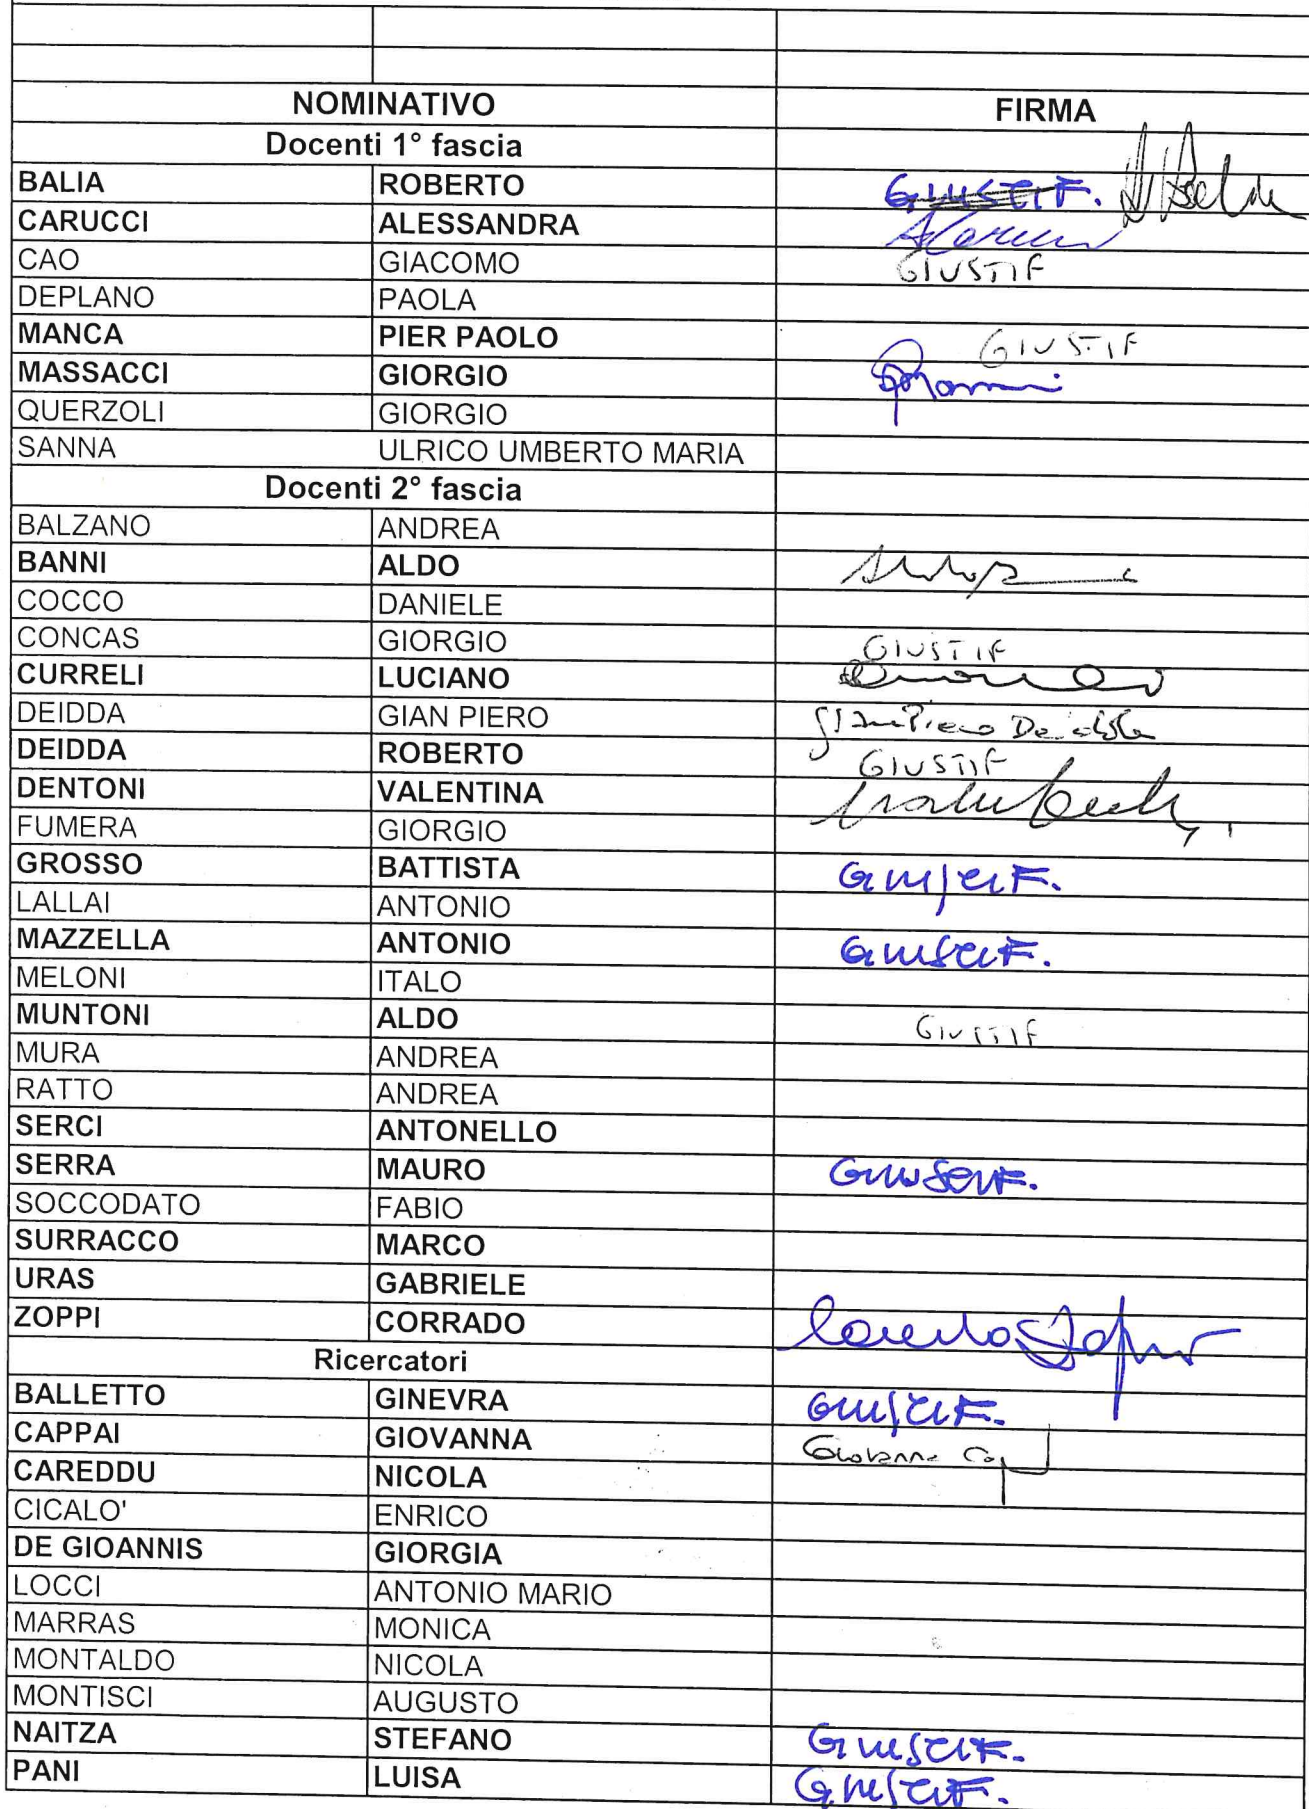 NOMINATIVO FIRMA
Docenti 1° fascia
BALIA ROBERTO GIUSTIF.
CARUCCI ALESSANDRA
CAO GIACOMO GIUSTIF
DEPLANO PAOLA
MANCA PIER PAOLO GIUSTIF
MASSACCI GIORGIO
QUERZOLI GIORGIO
SANNA ULRICO UMBERTO MARIA
Docenti 2° fascia
BALZANO ANDREA
BANNI ALDO
COCCO DANIELE
CONCAS GIORGIO GIUSTIF
CURRELI LUCIANO
DEIDDA GIAN PIERO Gian Piero Deidda
DEIDDA ROBERTO GIUSTIF
DENTONI VALENTINA
FUMERA GIORGIO
GROSSO BATTISTA GIUSTIF.
LALLAI ANTONIO
MAZZELLA ANTONIO GIUSTIF.
MELONI ITALO
MUNTONI ALDO GIUSTIF
MURA ANDREA
RATTO ANDREA
SERCI ANTONELLO
SERRA MAURO GIUSTIF.
SOCCODATO FABIO
SURRACCO MARCO
URAS GABRIELE
ZOPPI CORRADO Corrado Zoppi
Ricercatori
BALLETTO GINEVRA GIUSTIF.
CAPPAI GIOVANNA Giovanna
CAREDDU NICOLA
CICALO' ENRICO
DE GIOANNIS GIORGIA
LOCCI ANTONIO MARIO
MARRAS MONICA
MONTALDO NICOLA
MONTISCI AUGUSTO
NAITZA STEFANO GIUSTIF.
PANI LUISA GIUSTIF.